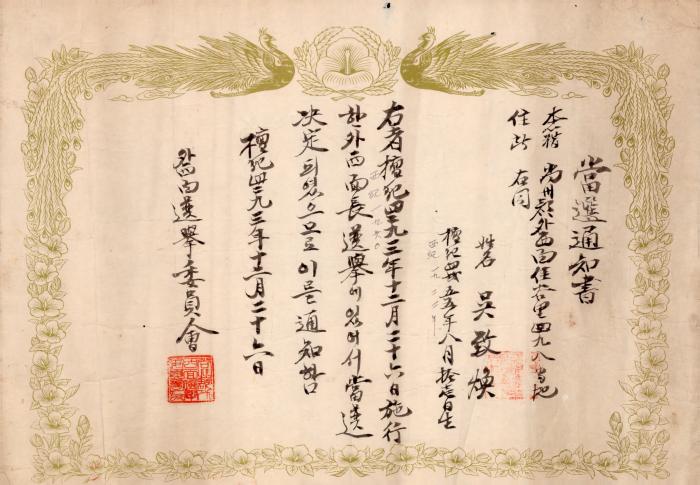 當選通知書
本籍 尙州郡外西面 里四九八番地
住所 右同
姓名 吳致煥
檀紀四二五五年八月 日生
西紀一九二
右者檀紀四二九三年十二月二十六日施行
西紀 一九六〇
한外西面長選擧에있어서當選
決定되었으므로이를通知함
檀紀四二九三年十二月二十六日
外西面選擧委員會